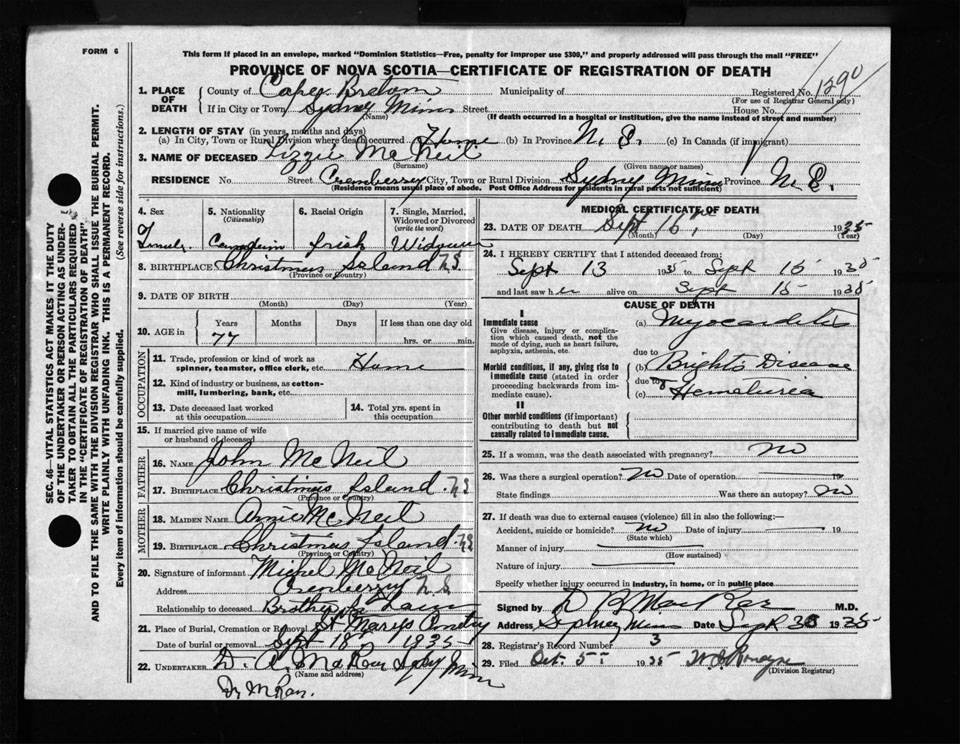 FORM 6
This form if placed in an envelope, marked "Dominion Statistics—Free, penalty for improper use $300," and properly addressed will pass through the mail "FREE"
PROVINCE OF NOVA SCOTIA—CERTIFICATE OF REGISTRATION OF DEATH
1290
SEC. 46—VITAL STATISTICS ACT MAKES IT THE DUTY
OF THE UNDERTAKER OR PERSON ACTING AS UNDER-
TAKER TO OBTAIN ALL THE PARTICULARS REQUIRED
IN THE "CERTIFICATE OF REGISTRATION OF DEATH"
AND TO FILE THE SAME WITH THE DIVISION REGISTRAR WHO SHALL ISSUE THE BURIAL PERMIT.
WRITE PLAINLY WITH UNFADING INK. THIS IS A PERMANENT RECORD.
Every item of information should be carefully supplied. (See reverse side for instructions.)
1. PLACE OF DEATH
County of Cape Breton Municipality of Registered No.
(For use of Registrar General only)
If in City or Town Sydney Mines Street House No.
(Name) (If death occurred in a hospital or institution, give the name instead of street and number)
2. LENGTH OF STAY (in years, months and days)
(a) In City, Town or Rural Division where death occurred Home (b) In Province N. S. (c) In Canada (if immigrant)
3. NAME OF DECEASED Lizzie McNeil
(Surname) (Given name or names)
RESIDENCE No. Street Cranberry City, Town or Rural Division Sydney Mines Province N. S.
(Residence means usual place of abode. Post Office Address for residents in rural parts not sufficient)
4. Sex Female
5. Nationality (Citizenship) Canadian
6. Racial Origin Irish
7. Single, Married, Widowed or Divorced (write the word) Widow
8. BIRTHPLACE Christmas Island N.S.
(Province or Country)
9. DATE OF BIRTH
(Month) (Day) (Year)
10. AGE in Years Months Days If less than one day old
77 hrs. or min.
OCCUPATION
11. Trade, profession or kind of work as spinner, teamster, office clerk, etc. Home
12. Kind of industry or business, as cotton-mill, lumbering, bank, etc.
13. Date deceased last worked at this occupation
14. Total yrs. spent in this occupation
15. If married give name of wife or husband of deceased
FATHER
16. NAME John McNeil
17. BIRTHPLACE Christmas Island. N.S
(Province or Country)
MOTHER
18. MAIDEN NAME Annie McNeil
19. BIRTHPLACE Christmas Island. N.S
(Province or Country)
20. Signature of informant Michel McNeil
Address Cranberry N.S
Relationship to deceased Brother in Law
21. Place of Burial, Cremation or Removal St Marys Cemetry
Date of burial or removal Sept 18 1935
22. UNDERTAKER
(Name and address)
MEDICAL CERTIFICATE OF DEATH
23. DATE OF DEATH Sept 16, 1935
(Month) (Day) (Year)
24. I HEREBY CERTIFY that I attended deceased from:
Sept 13 1935 to Sept 15 1935
and last saw her alive on Sept 15 1935
CAUSE OF DEATH
I
Immediate cause
Give disease, injury or complication which caused death, not the mode of dying, such as heart failure, asphyxia, asthenia, etc.
(a) Myocarditis
due to
Morbid conditions, if any, giving rise to immediate cause (stated in order proceeding backwards from immediate cause).
(b) Brights Disease
due to
(c)
II
Other morbid conditions (if important) contributing to death but not causally related to immediate cause.
25. If a woman, was the death associated with pregnancy? No
26. Was there a surgical operation? No Date of operation 19
State findings Was there an autopsy? No
27. If death was due to external causes (violence) fill in also the following:—
Accident, suicide or homicide? No Date of injury 19
(State which)
Manner of injury
(How sustained)
Nature of injury
Specify whether injury occurred in industry, in home, or in public place
Signed by M.D.
Address Sydney Mines Date Sept 30 1935
28. Registrar's Record Number 3
29. Filed Oct. 5 1935
(Division Registrar)